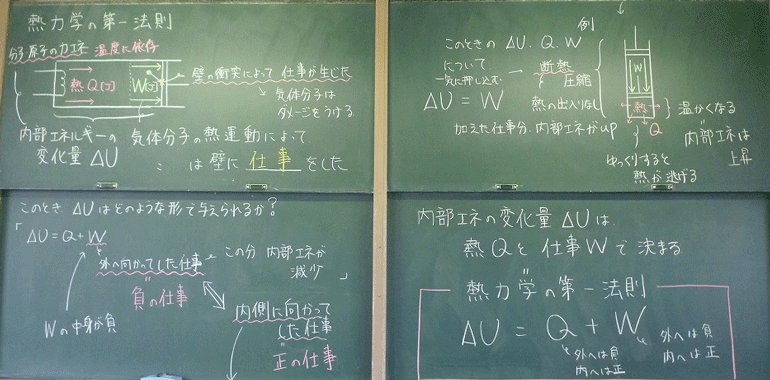 熱力学の第一法則
分子原子の力エネ 温度に依存
熱Q(J)
W(J)
壁の衝突によって 仕事が生じた
気体分子は
ダメージをうける
内部エネルギーの
変化量 ΔU
気体分子の熱運動によって
は壁に 仕事 をした
このとき ΔUはどのような形で与えられるか?
「ΔU=Q+W
外へ向かってした仕事
この分 内部エネが
減少 」
負の仕事
Wの中身が負
内側に向かって
した仕事
正の仕事
例
このときの ΔU、Q、W
について
一気に押し込む
断熱
圧縮
ΔU = W
熱の出入りなし
加えた仕事分、内部エネがup
W
熱
Q
温かくなる
内部エネは
上昇
ゆっくりすると
熱が逃げる
内部エネの変化量 ΔUは、
熱Qと仕事Wで決まる
熱力学の第一法則
ΔU = Q + W
外へは負
内へは正
外へは負
内へは正